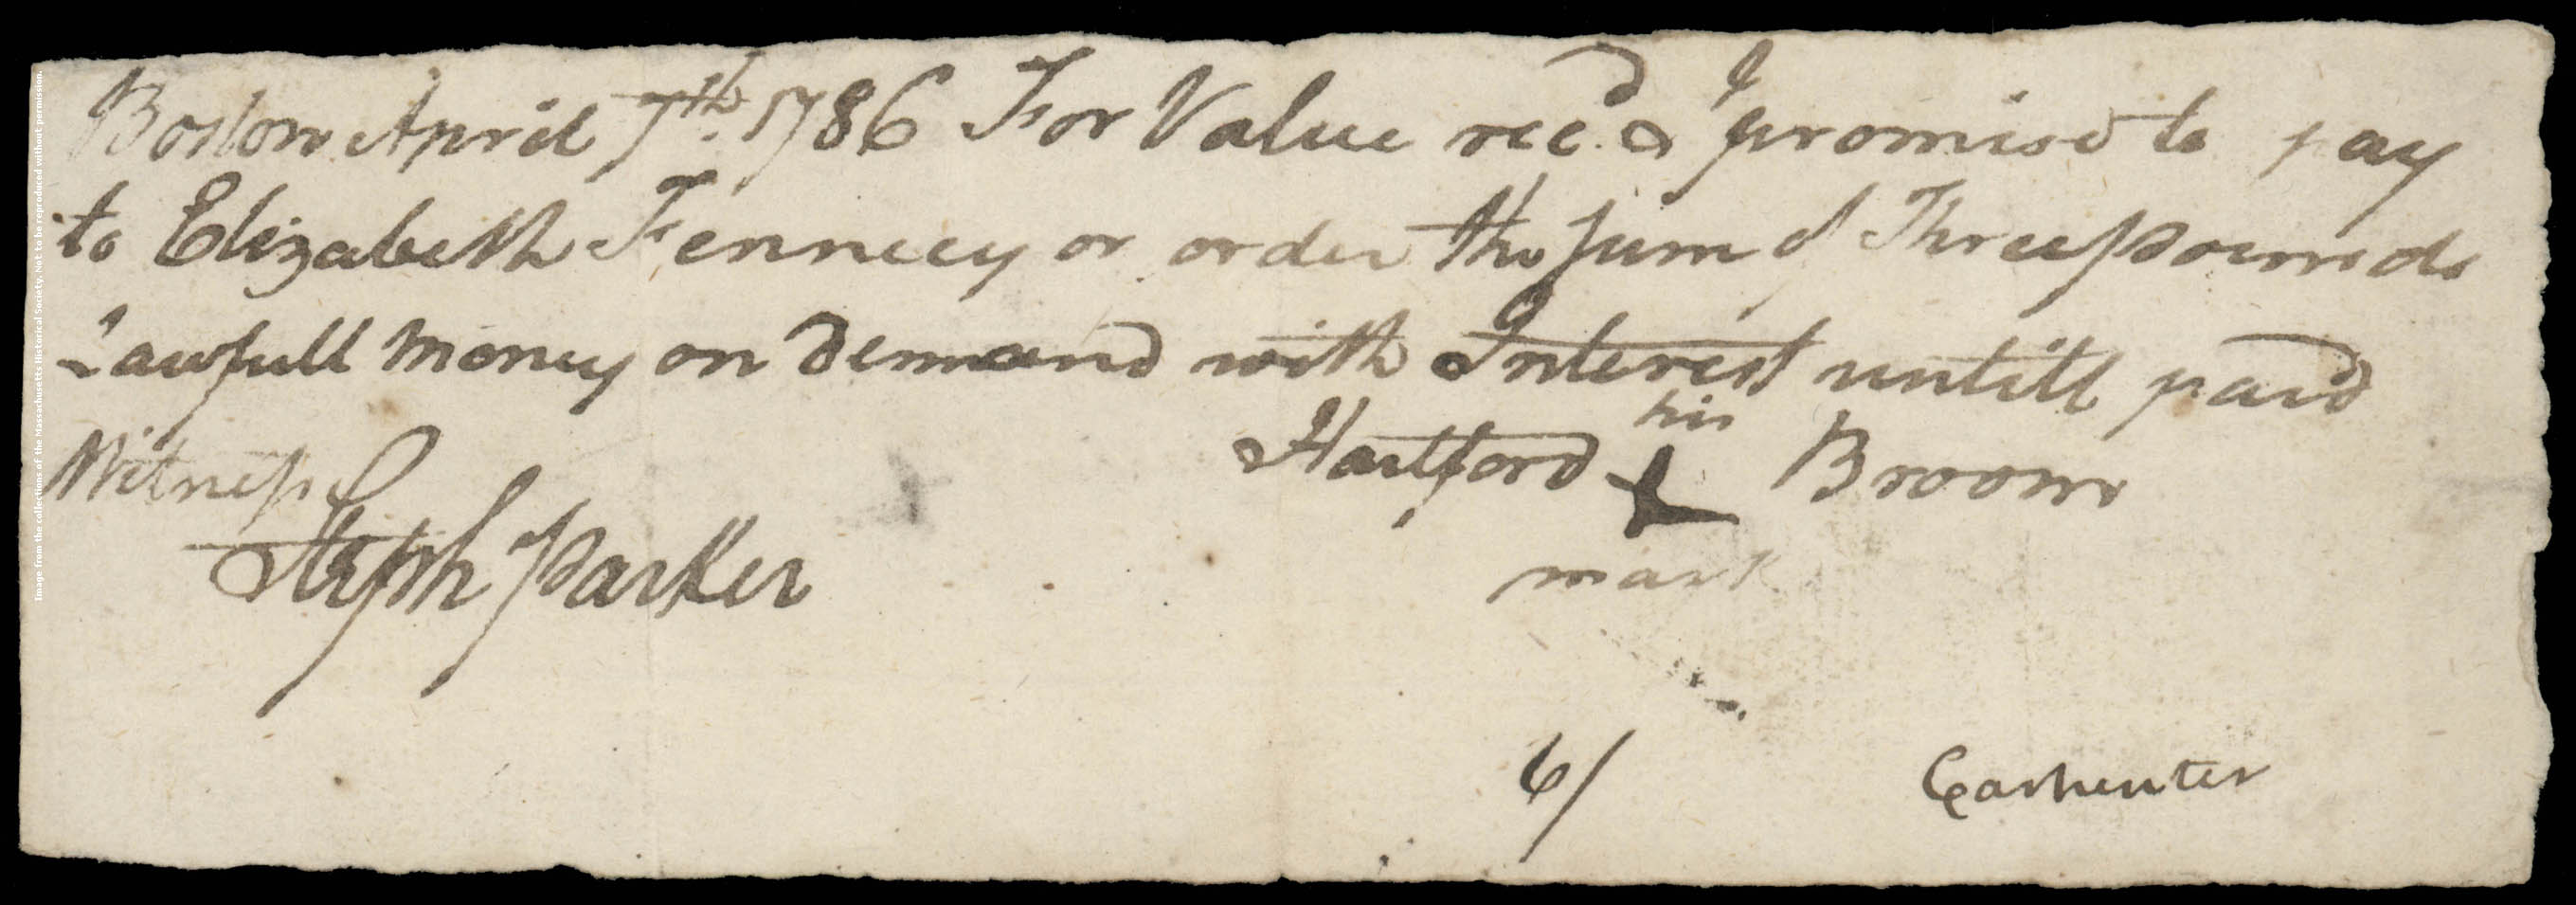 Boston April 7th. 1786 For Value rec.d I promise to pay
to Elizabeth Fenneey or order the sum of Three pounds
Lawfull money on Demand with Interest untill paid
Witness
his
Hartford Broom
mark
Steph Parker
6/
Carpenter
Image from the collections of the Massachusetts Historical Society. Not to be reproduced without permission.